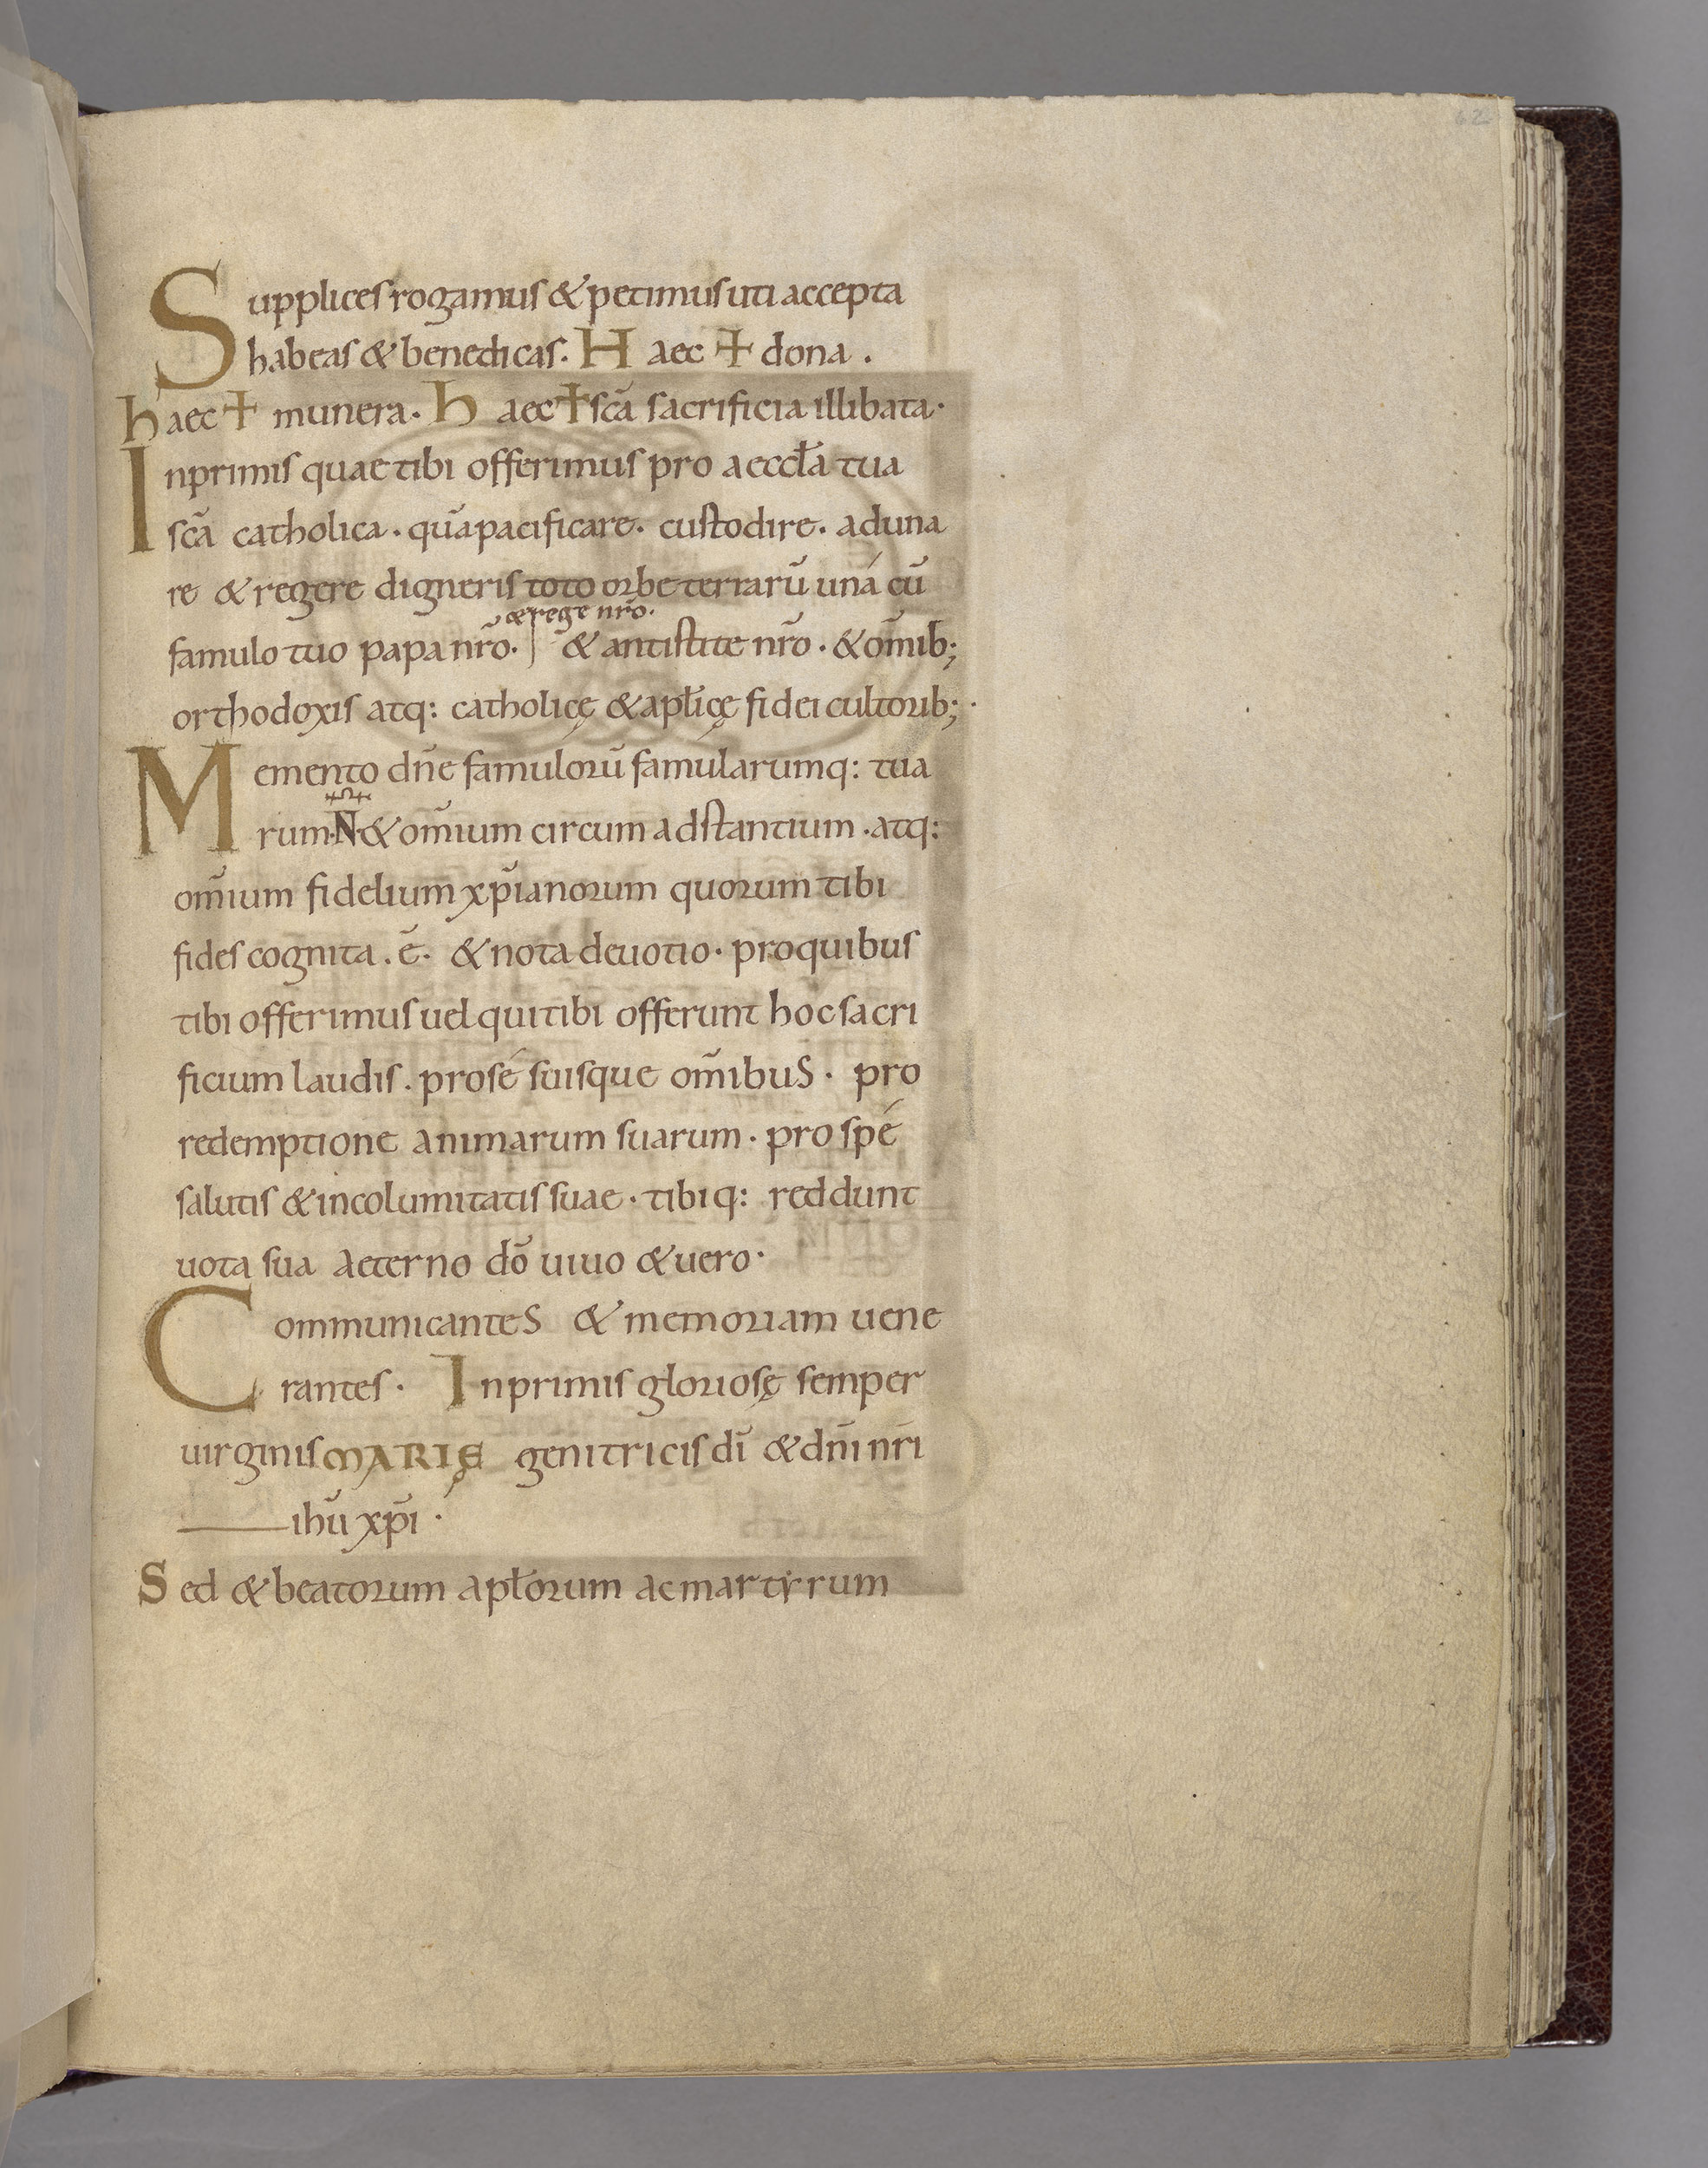 62
Supplices rogamus & petimus uti accepta
habeas & benedicas. Haec ✝ dona .
haec ✝ munera. haec ✝ scā sacrificia illibata.
Inprimis quae tibi offerimus pro aeccłā tua
scā catholica. quā pacificare. custodire. aduna
re & regere digneris toto orbe terrarū uná cū
& rege nr̄o.
famulo tuo papa nr̄o. & antistite nr̄o. & om̄ib;
orthodoxis atq: catholicę & apłicę fidei cultorib;.
Memento dn̄e famulorū famularumq: tua
rum.N.& om̄ium circum adstantium .atq:
om̄ium fidelium xp̄ianorum quorum tibi
fides cognita .ē. & nota deuotio. pro quibus
tibi offerimus uel qui tibi offerunt hoc sacri
ficium laudis. pro sé suisque om̄ibuS. pro
redemptione animarum suarum. pro spé
salutis & incolumitatis suae. tibiq: reddunt
uota sua aeterno dō uiuo & uero.
CommunicanteS & memoriam uene
rantes. Inprimis gloriosę semper
uirginis MARIĘ genitricis dī & dn̄i nr̄i
ihū xp̄i .
Sed & beatorum apłorum ac martẏrum